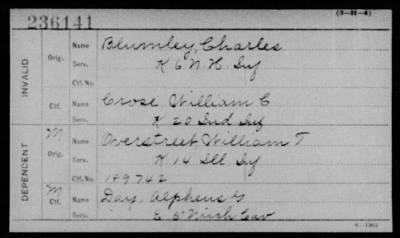 236141
(3-H-4)
INVALID
Orig.
Name Blumley, Charles
Serv. K 6 N. H. Inf
Ctf. No.
Ctf.
Name Crose William C
Serv. K 20 Ind Inf
DEPENDENT
M
Orig.
Name Overstreet William T
Serv. K 14 Ill Inf
Ctf. No. 189742
M
Ctf.
Name Day, Alpheus G
Serv. E 5 Mich Cav